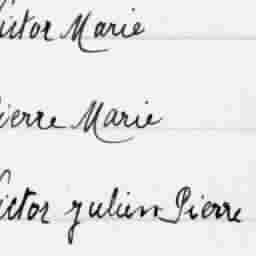 Victor Marie
Pierre Marie
Victor Julien Pierre